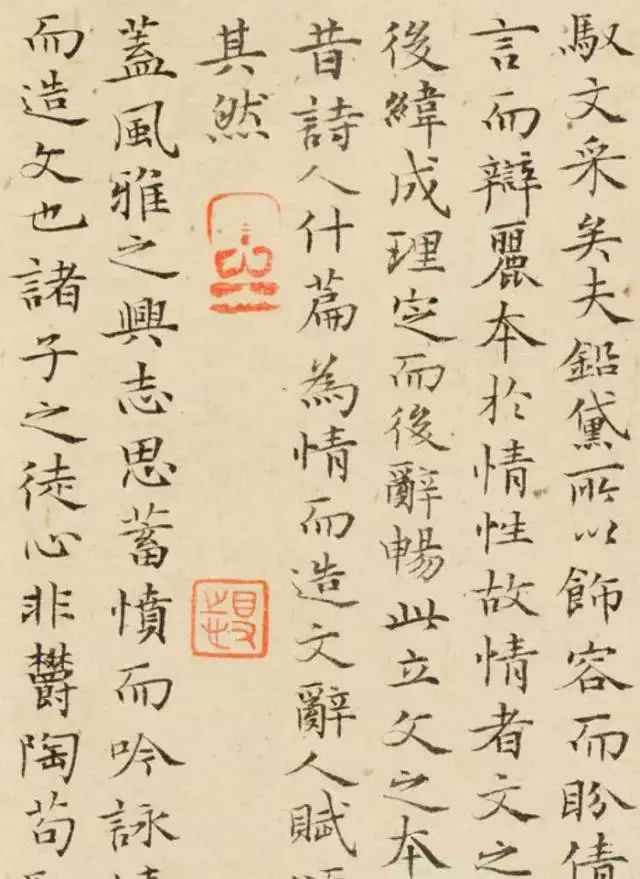 馭文采矣夫鉛黛所以飾容而盼倩
言而辯麗本於情性故情者文之
後緯成理定而後辭暢此立文之本
昔詩人什篇為情而造文辭人賦
其然
蓋風雅之興志思蓄憤而吟詠
而造文也諸子之徒心非鬱陶苟